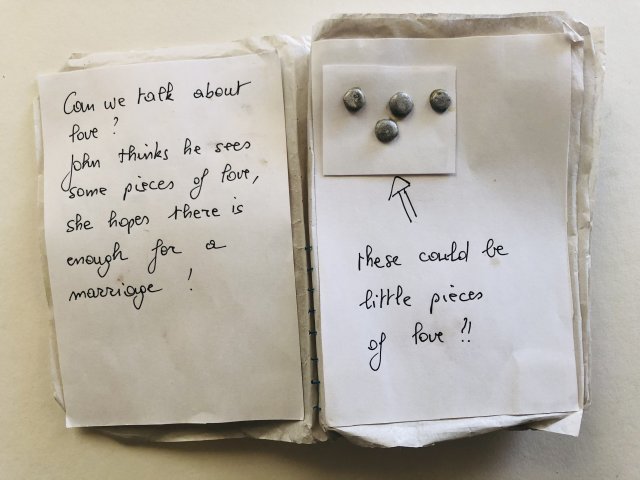 Can we talk about
love?
John thinks he sees
some pieces of love,
she hopes there is
enough for a
marriage !
these could be
little pieces
of love !!